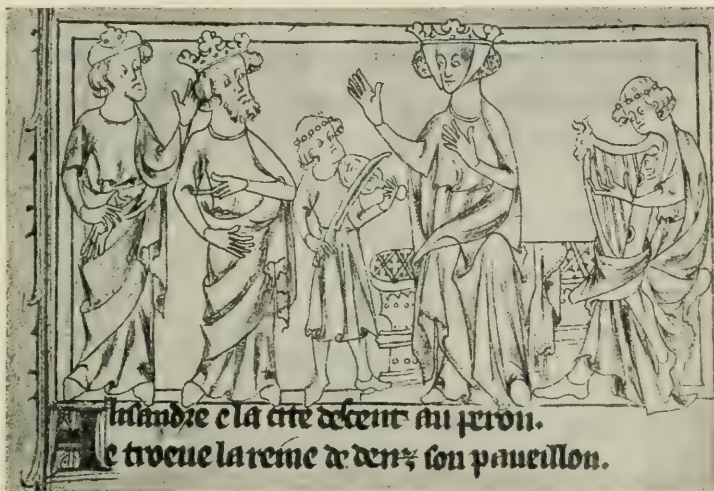 Alisandre e la cite decent au peron.
E troeue la reine de denz son paueillon.